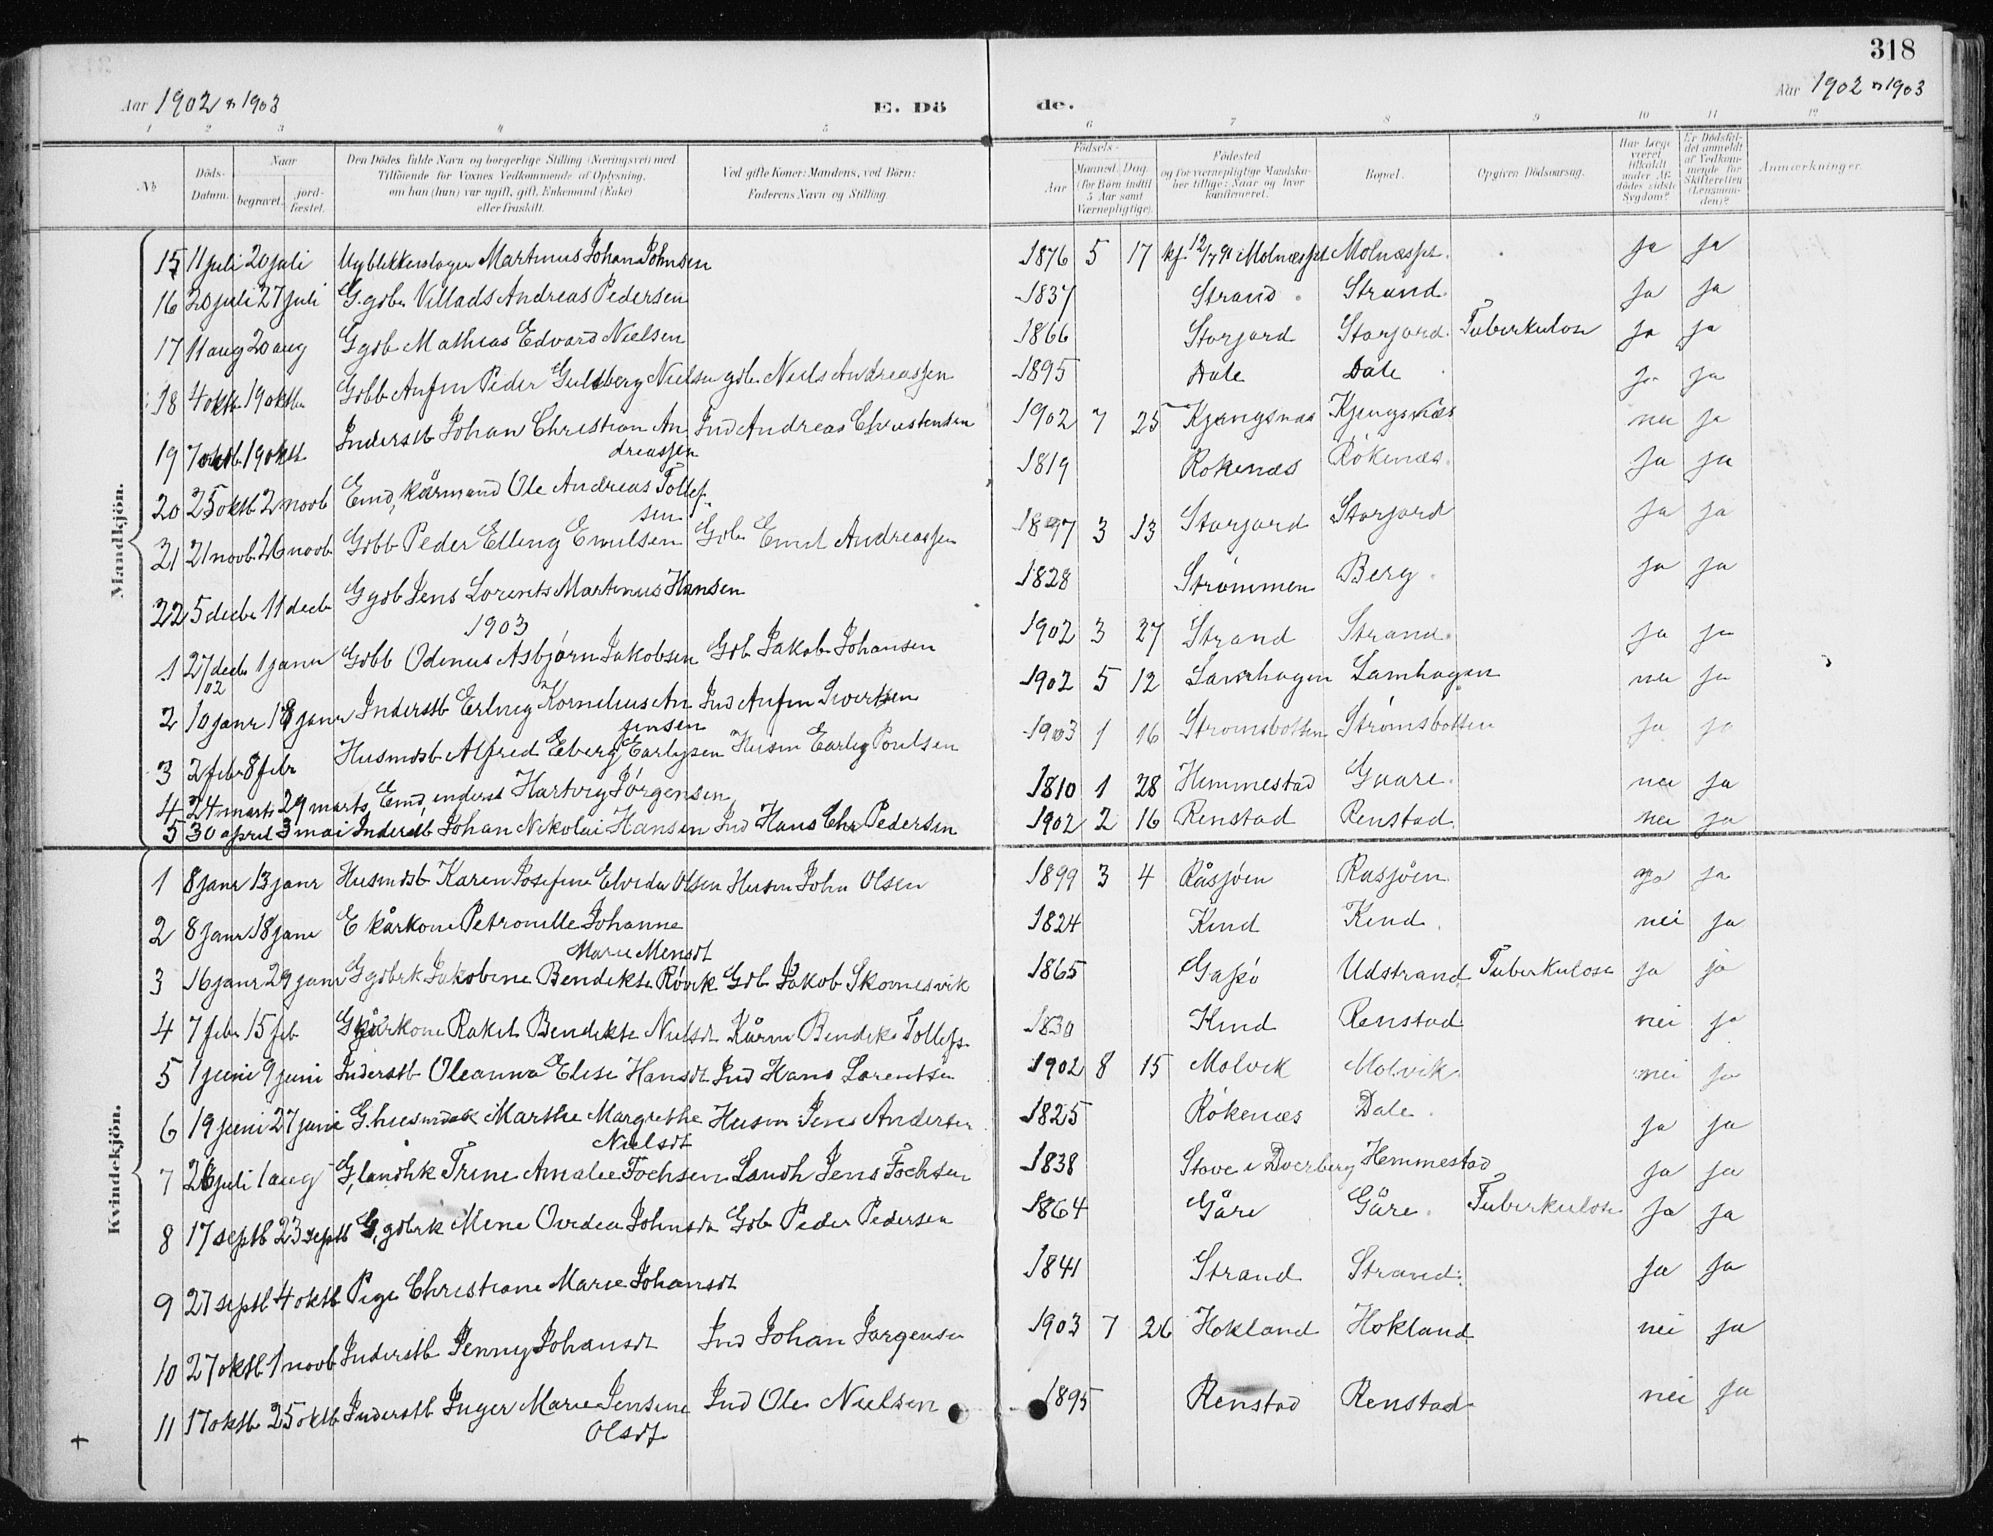 318
Aar 1902 & 1903
E. Dö
de.
Aar 1902 & 1903
1 2 3 4 5 6 7 8 9 10 11 12
No
Döds-Datum.
Naar
begravet.
jordfæstet.
Den Dödes fulde Navn og borgerlige Stilling (Næringsvei) med
Tilföiende for Voxnes Vedkommende af Oplysning,
om han (hun) var ugift, gift, Enkemand (Enke)
eller fraskilt.
Ved gifte Koner: Mandens, ved Börn:
Faderens Navn og Stilling.
Födsels-
Aar
Maaned. Dag.
(for Börn indtil
5 Aar samt
Værnepligtige).
Födested
og for værnepligtige Mandskaber tillige: Naar og hvor
konfirmeret.
Bopæl.
Opgiven Dödsaarsag.
Har Læge været tilkaldt under Afdödes sidste Sygdom?
Er Dödsfaldet anmeldt af Vedkommende for Skifteretten (Lensmanden)?
Anmærkninger.
Mandkjön.
15 11 juli 20 juli Ug blikkenslager Martinus Johan Johnsen 1876 5 17 kf. 12/7 91 i Molnæsset Molnæsset. ja ja
16 20 juli 27 juli G. gdbr Villads Andreas Pedersen 1837 Strand Strand. ja ja
17 11 aug 20 aug G gdb Mathias Edvard Nielsen 1866 Storjord Storjord. Tuberkulose ja ja
18 4 oktb 19 oktb Gdbb Anfin Peder Guldberg Nielsen gdb. Niels Andreassen 1895 Dale Dale ja ja
19 7 oktb 19 oktb Inderstb Johan Christian Andreassen Ind Andreas Christensen 1902 7 25 Kjengsnæs Kjengsnæs nei ja
20 25 oktb 2 novb Emd, kårmand Ole Andreas Tollefsen 1819 Rokenæs Rökenæs. ja ja
21 21 novb 26 novb Gdbb Peder Elling Emilsen Gdb Emil Andreassen 1897 3 13 Storjord Storjord ja ja
22 5 decb 11 decb G gdb Jens Lorents Martinus Hansen 1828 Strømmen Berg ja ja
1903
1 27 decb 02 1 janr Gdbb Odinus Asbjørn Jakobsen Gdb Jakob Johansen 1902 3 27 Strand Strand. ja ja
2 10 janr 18 janr Inderstb Erling Kornelius Anfinsen Ind Anfin Sivertsen 1902 5 12 Lamhagen Lamhagen nei ja
3 2 febr 8 febr Husmdsb Alfred Eberg Earlysen Husm Earlig Poulsen 1903 1 16 Strømsbotten Strømsbotten ja ja
4 24 marts 29 marts Emd, inderst Hartvig Jørgensen 1810 1 28 Hemmestad Gaare. nei ja
5 30 april 3 mai Inderstb Johan Nikolai Hansen Ind Hans Chr Pedersen 1902 2 16 Renstad Renstad. nei ja
Kvindekjön.
1 8 janr 13 janr Husmdsb Karen Josefine Elvida Olsen Husm John Olsen 1899 3 4 Råsjøen Rasjøen ja ja
2 8 janr 18 janr E kårkone Petronille Johanne Marie Mensdt 1824 Kind Kind. nei ja
3 16 janr 29 janr G gdbrk Jakobine Bendikte Røvik Gdb Jakob Skovnesvik 1865 Gapø Udstrand Tuberkulose ja ja
4 7 febr 15 feb G kårkone Rakel Bendikte Nielsdt Kårm Bendik Tollefs. 1830 Kind Renstad nei ja
5 1 juni 9 juni Inderstb Oleanna Elise Hansdt Ind Hans Lorentsen 1902 8 15 Molvik Molvik. nei ja
6 19 juni 27 juni G. husmdsk Marthe Margrethe Nielsdt Husm Jens Andersen 1825 Rökenæs Dale. ja ja
7 26 juli 1 aug G, landhk Trine Amalie Fochsen Landh Jens Fochsen 1838 Stave i Dverberg Hemmestad ja ja
8 17 septb 23 septb G, gdbrk Mine Ovidea Johnsdt Gdb Peder Pedersen 1864 Gåre Gåre. Tuberkulose ja ja
9 27 septb 4 oktb Pige Christiane Marie Johansdt 1841 Strand Strand. ja ja
10 27 oktb 1 novb Inderstb Jenny Johansdt Ind Johan Jørgensen 1903 7 26 Hokland Hokland nei ja
11 17 oktb 25 oktb Inderstb Inger Marie Jensine Olsdt Ind Ole Nielsen 1895 Renstad Renstad nei ja